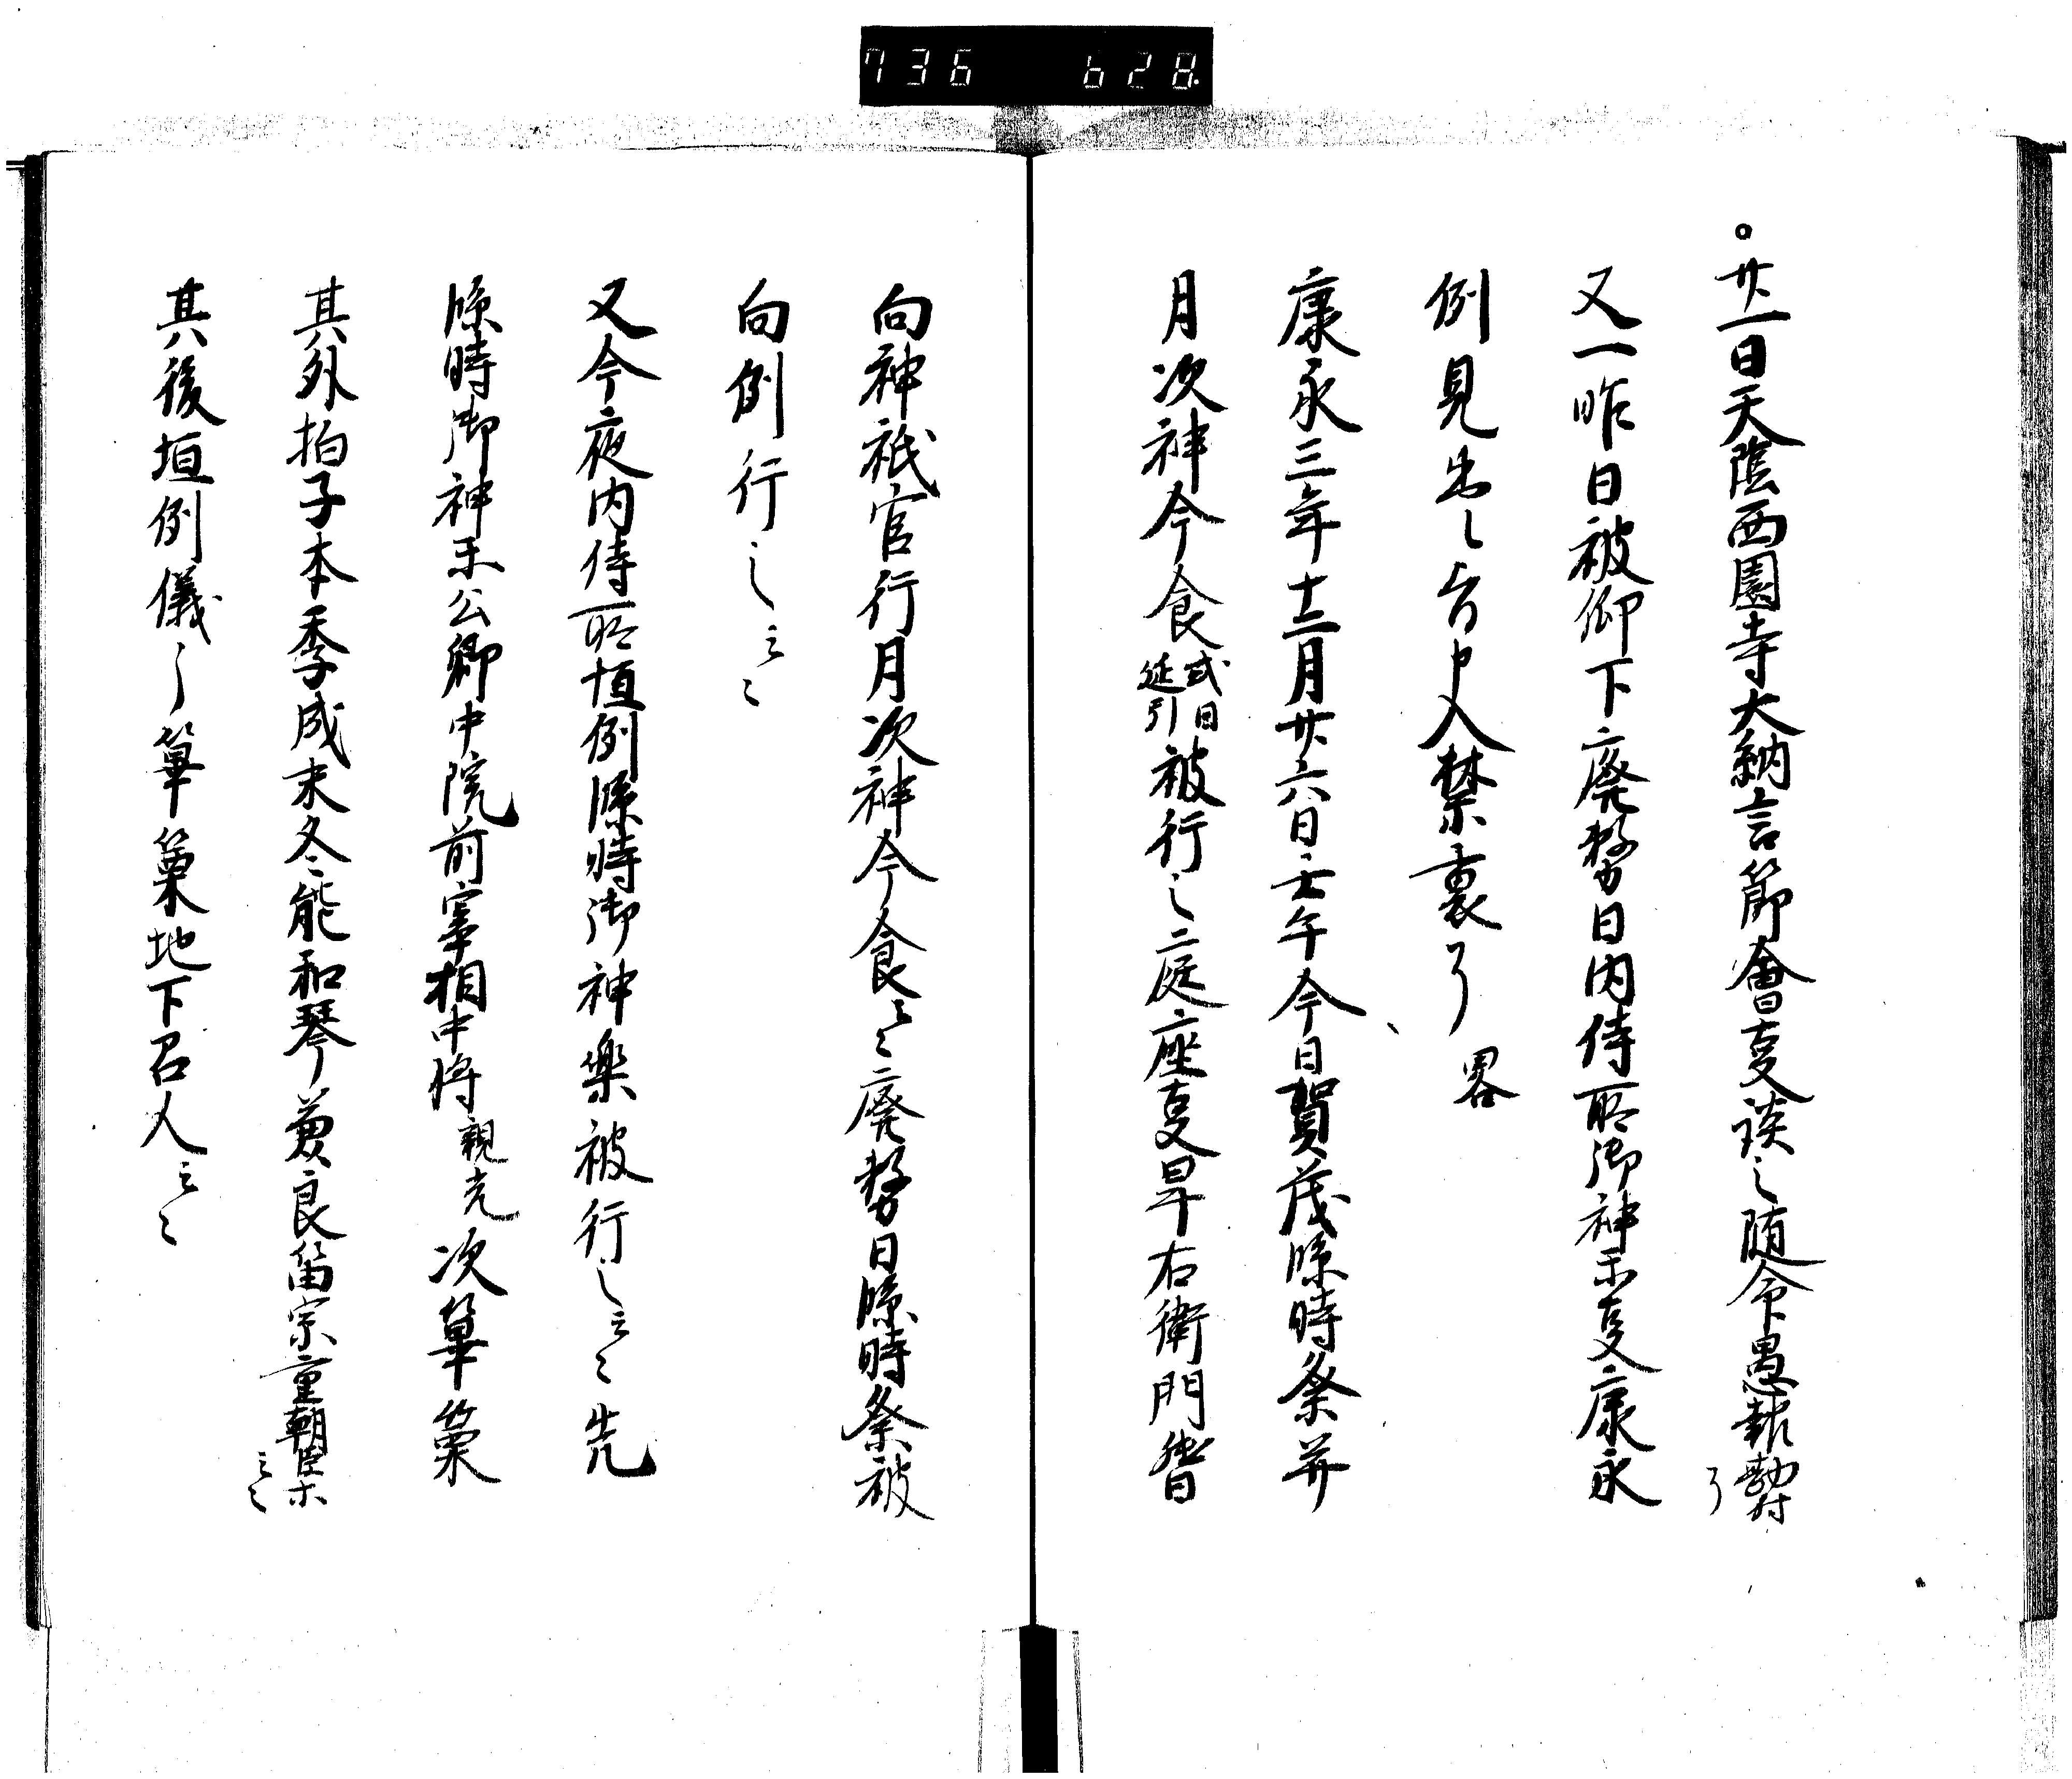 736 628
。廿一日天陰西園寺大納言節會事談之随令愚報勘付了
又一昨日被仰下廃務日内侍所御神示事康永
例見出之旨申入禁裏了、畧
康永三年十二月廿六日壬午今日賀茂臨時祭并
月次神今食式日延引被行之庭座事畢右衛門督
向神祇官行月次神今食云々廃務日臨時祭被
向例行之云々
又今夜内侍所恒例臨時御神楽被行之云々先
臨時御神示公卿中院前宰相中将親光次篳篥
其外拍子本季成末冬能和琴兼良笛宗重朝臣ホ云々
其後恒例儀了篳篥地下召人云々